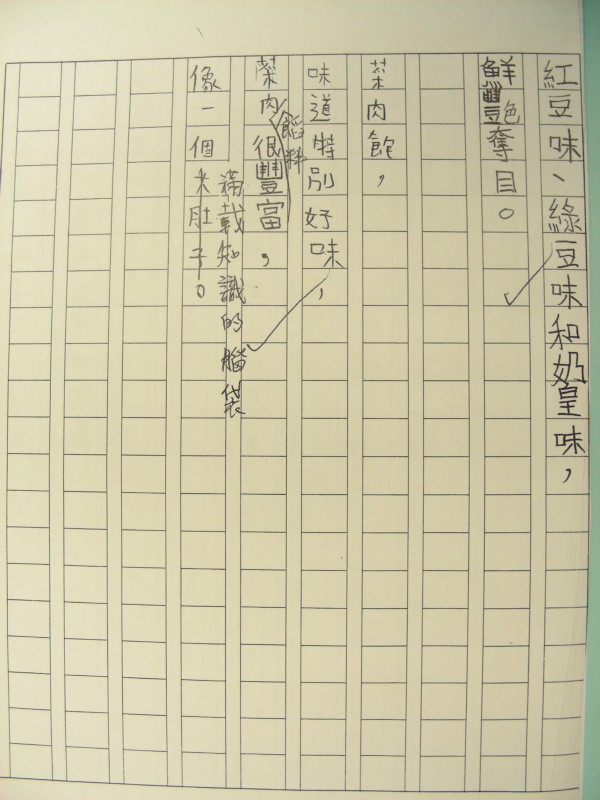 紅豆味、綠豆味和奶皇味，
鮮豔奪目。
色
菜肉飽，
味道特別好味，
餡料
菜肉很豐富，
滿載知識的腦袋
像一個大肚子。